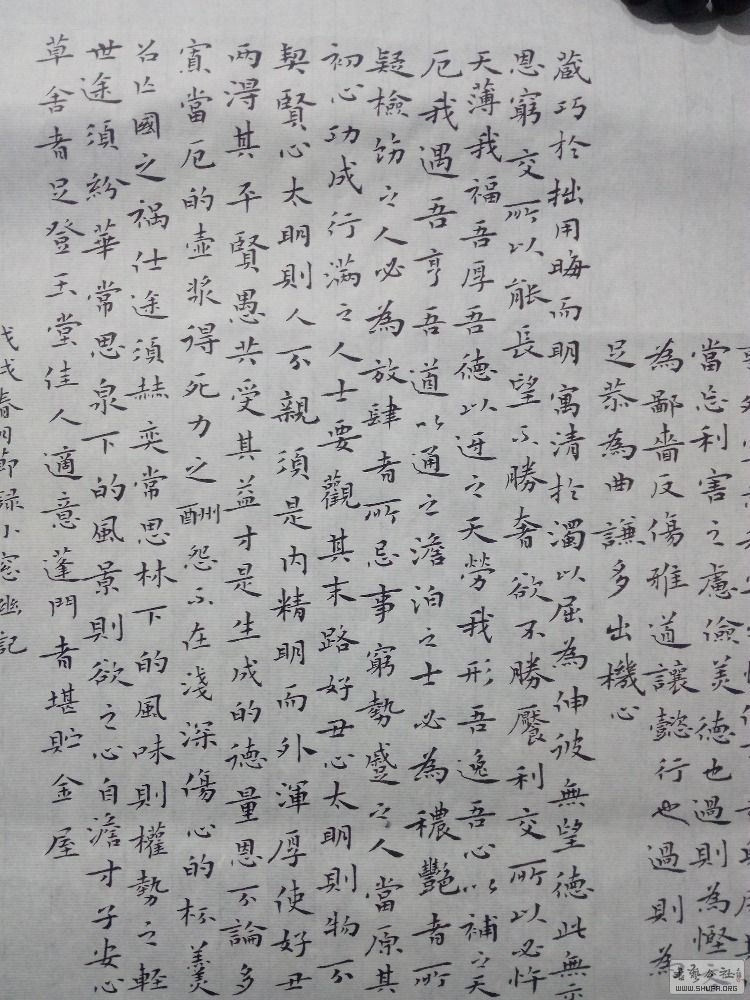 當忘利害之慮儉美德也過則為慳
為鄙嗇反傷雅道讓懿行也過則為
足恭為曲謙多出機心
蔵巧於拙用晦而明寓清於濁以屈為伸彼無望德此無示
恩窮交所以能長望不勝奢欲不勝饜利交所以必忤
天薄我福吾厚吾德以迓之天勞我形吾逸吾心以補之天
厄我遇吾亨吾道以通之澹泊之士必為穠艷者所
疑檢飭之人必為放肆者所忌事窮勢蹙之人當原其
初心功成行滿之人士要觀其末路好丑心太明則物不
契賢心太明則人不親須是內精明而外渾厚使好丑
兩得其平賢愚共受其益才是生成的德量恩不論多
寡當厄的壺漿得死力之酬怨不在淺深傷心的杯羹
召亡國之禍仕途須赫奕常思林下的風味則權勢之輕
世途須紛華常思泉下的風景則欲之心自澹才子安心
草舍者足登玉堂佳人適意蓬門者堪貯金屋
戊戌春月節録小窓幽記
书艺公社
WWW.SHUFA.ORG